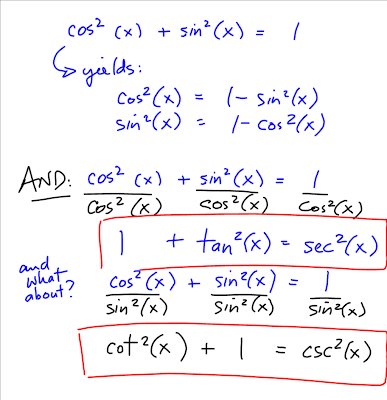 cos²(x) + sin²(x) = 1
yields:
cos²(x) = 1 - sin²(x)
sin²(x) = 1 - cos²(x)
AND: cos²(x)/cos²(x) + sin²(x)/cos²(x) = 1/cos²(x)
1 + tan²(x) = sec²(x)
and what about? cos²(x)/sin²(x) + sin²(x)/sin²(x) = 1/sin²(x)
cot²(x) + 1 = csc²(x)